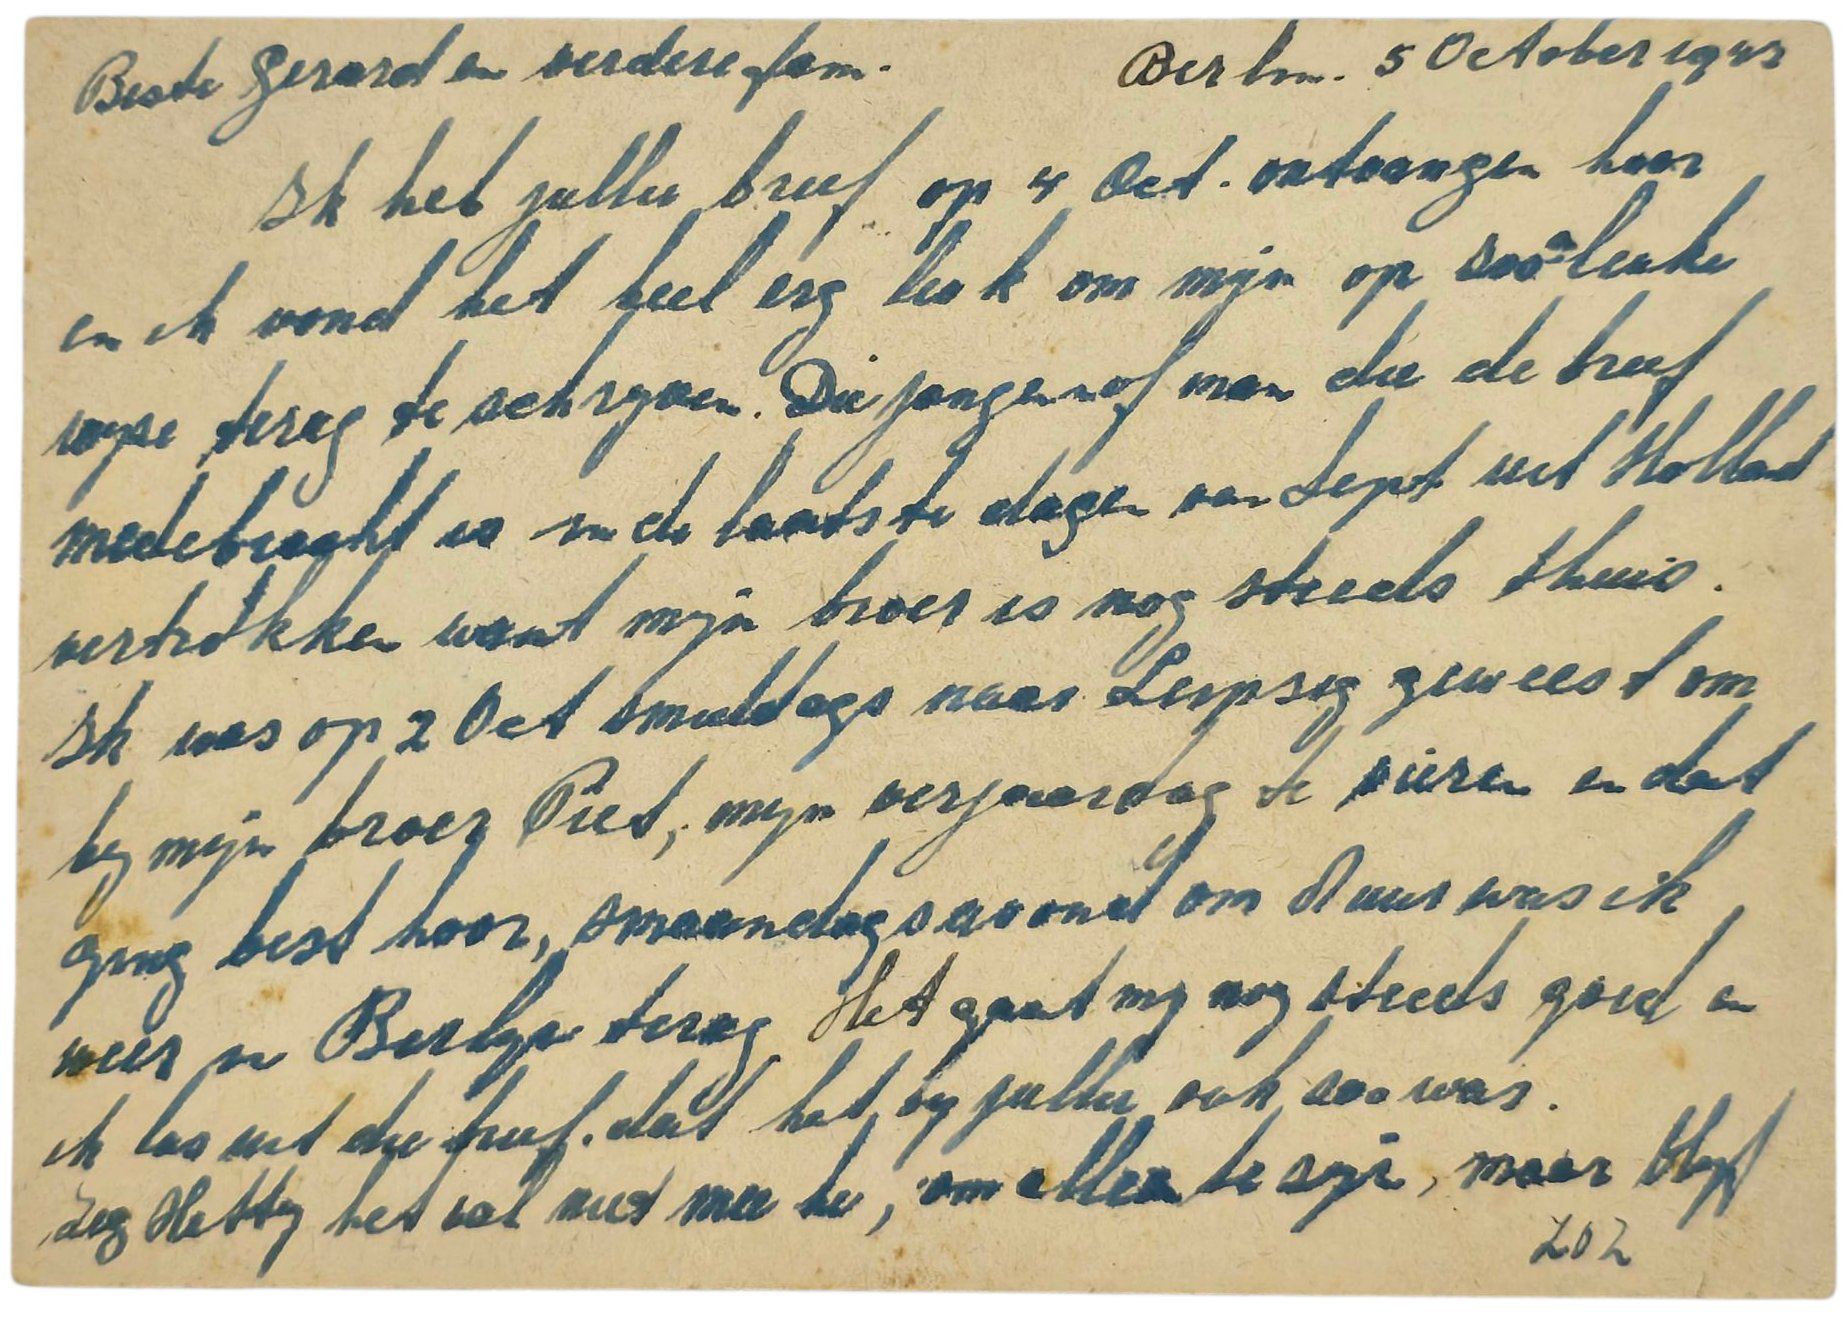 Beste Gerard en verdere fam. Berlin. 5 October 1942
Ik heb jullie brief op 4 Oct. ontvangen hoor
en ik vond het heel erg leuk om mijn op zoo'n leuke
wyse terug te schryven. Die jongen of man die de brief
medebracht is in de laatste dagen van Sept uit Holland
vertrokken want mijn broer is nog steeds thuis.
Ik was op 2 Oct smiddags naar Leipzig geweest om
by mijn broer Piet, mijn verjaardag te vieren en dat
ging best hoor, smaandagsavond om 8 uur was ik
weer in Berlyn terug Het gaat my nog steeds goed en
ik las uit die brief. dat het by jullie ook zoo was.
Zeg Hetty het val niet mee he, om alleen te zyn, maar blyf
ZOZ